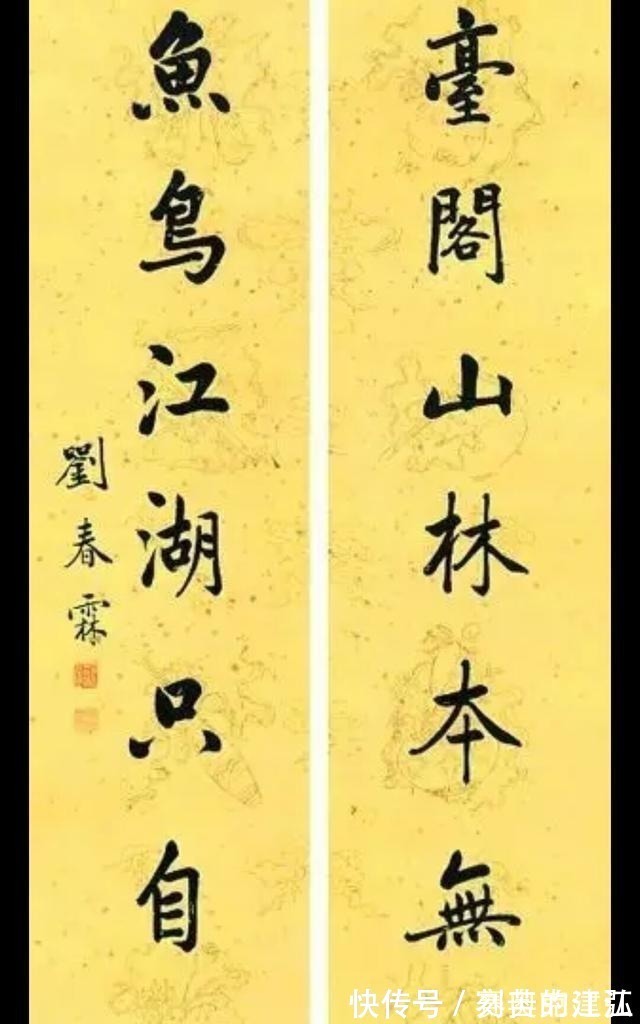 臺閣山林本無
魚鳥江湖只自
劉春霖
快传号／